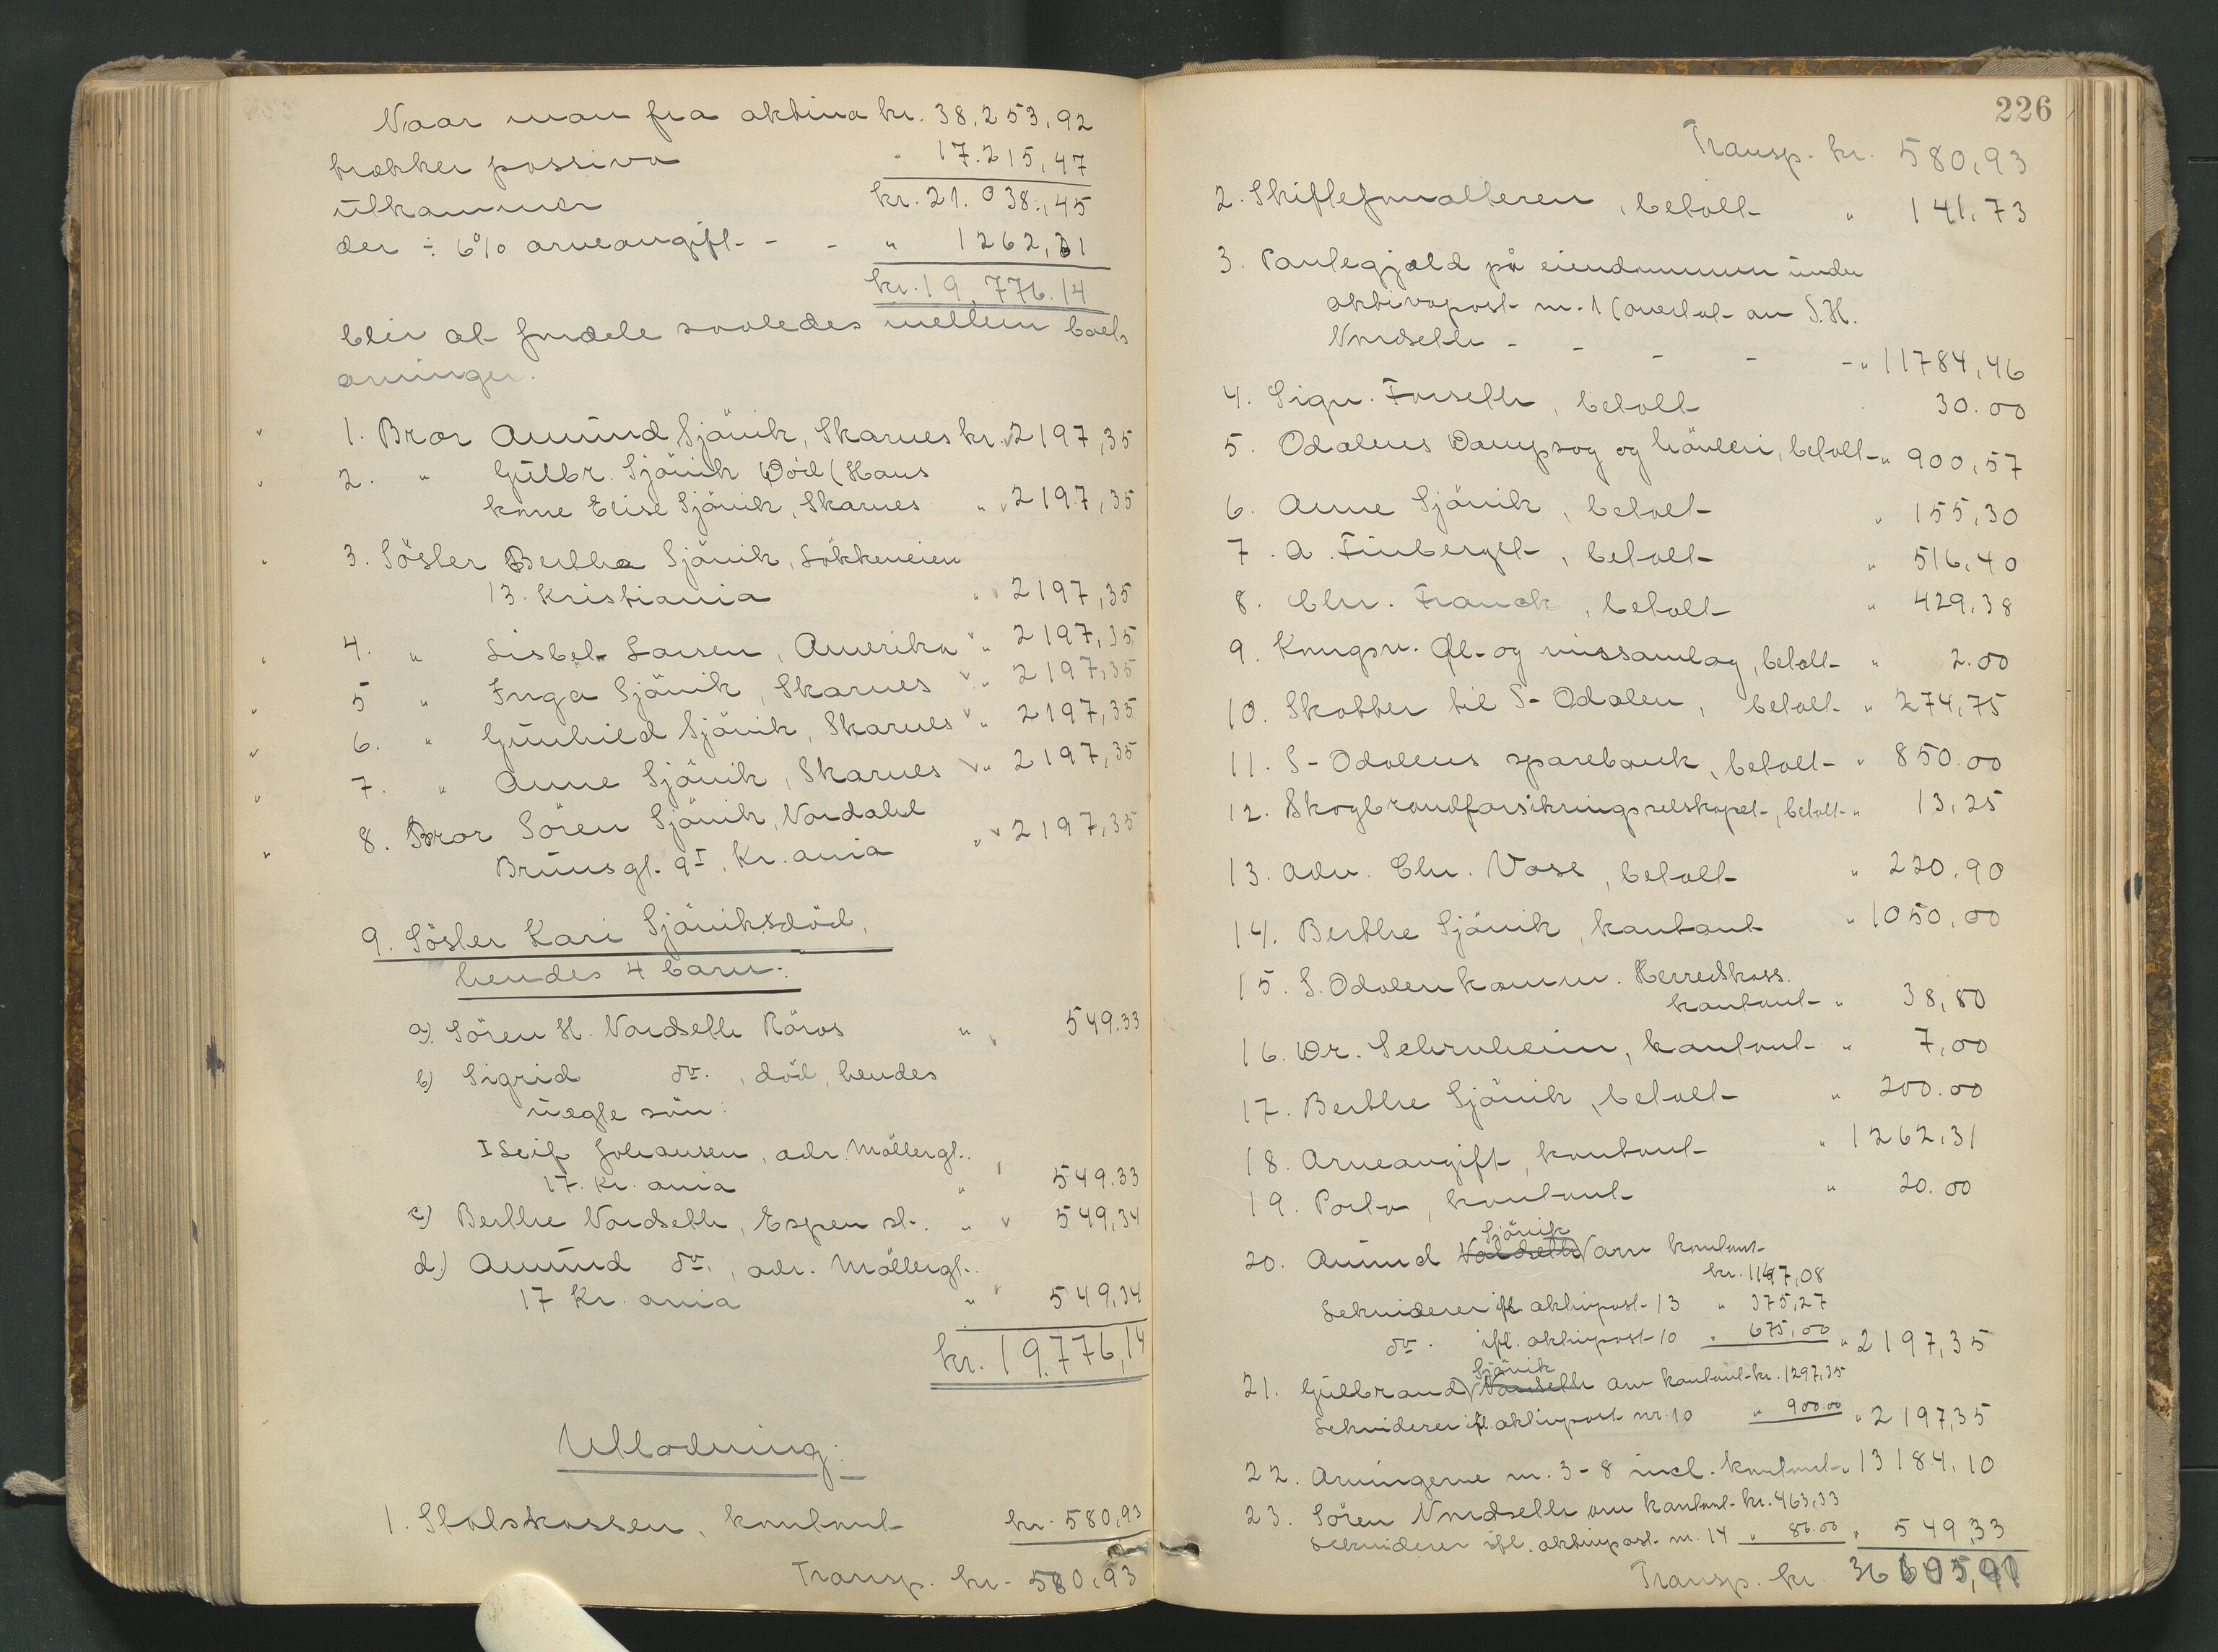 Naar man fra aktiva kr. 38.253,92
trækker passiva " 17.215,47
utkommer kr. 21.038,45
der ÷ 6% arveavgift - - " 1262,31
kr. 19.776.14
blir at fordele saaledes mellem boets
arvinger.
1. Bror Amund Sjåvik, Skarnes kr. 2197,35
2. " Gulbr. Sjåvik Död (Hans
kone Elise Sjåvik, Skarnes " 2197,35
3. Söster Berthe Sjåvik, Løkkeveien
13. Kristiania " 2197,35
4. " Lisbet Larsen, Amerika " 2197,35
5 " Inga Sjåvik, Skarnes " 2197,35
6. " Gunhild Sjåvik, Skarnes " 2197,35
7. " Anne Sjåvik, Skarnes " 2197,35
8. Bror Sören Sjåvik, Nordahl
Brunsgt. 9 I, Kr.ania " 2197,35
9. Söster Kari Sjåviksdöd,
hendes 4 barn:
a). Sören H. Nordseth Röros " 549.33
b) Sigrid do. , död, hendes
uægte sön:
I Leif Johansen, adr. Möllergt.
17. Kr.ania " 549.33
c) Berthe Nordseth, Espen st. " 549,34
d.) Amund do., adr. Möllergt.
17 Kr.ania " 549,34
kr. 19.776,14
Utlodning:
1. Statskassen, kontant kr. 580,93
Transp. kr. 580,93
226
Transp. kr. 580,93
2. Skifteforvalteren, betalt " 141.73
3. Pantegjæld på eiendommen under
aktivapost nr. 1 (overtat av S.H.
Nordseth - - - - - " 11784,46
4. Sign. Forseth, betalt 30.00
5. Odalens Dampsag og høvleri, betalt " 900,57
6. Anne Sjåvik, betalt " 155,30
7. A. Finberget, betalt " 516.40
8. Chr. Franck, betalt " 429,38
9. Kongsv. Øl- og vinsamlag, betalt " 2.00
10. Skatter til S-Odalen, betalt " 274,75
11. S-Odalens sparebank, betalt " 850.00
12. Skogbrandforsikringsselskapet, betalt " 13,25
13. Adv. Chr. Vase, betalt " 220.90
14. Berthe Sjåvik, kontant " 1050,00
15. S. Odalen komm. Herredskass.
kontant " 38,80
16. Dr. Schruheim, kontant " 7,00
17. Berthe Sjåvik, betalt " 200.00
18. Arveavgift, kontant " 1262,31
19. Porto, kontant " 20.00
Sjåvik
20. Amund Nordseth arv kontant
kr. 1147,08
Lekviderer ifl. aktivpost 13 " 375,27
do. ifl. aktivpost 10 " 675,00 " 2197,35
Sjåvik
21. Gulbrand Nordseth arv kontant kr. 1297,35
Lekviderer ifl. aktivpost nr. 10 " 900.00 " 2197,35
22. Arvingerne nr. 3-8 incl. kontant " 13184,10
23. Sören Nordseth arv kontant kr. 463,33
Lekviderer ifl. aktivpost nr. 14 " 86.00 " 549,33
Transp. kr.